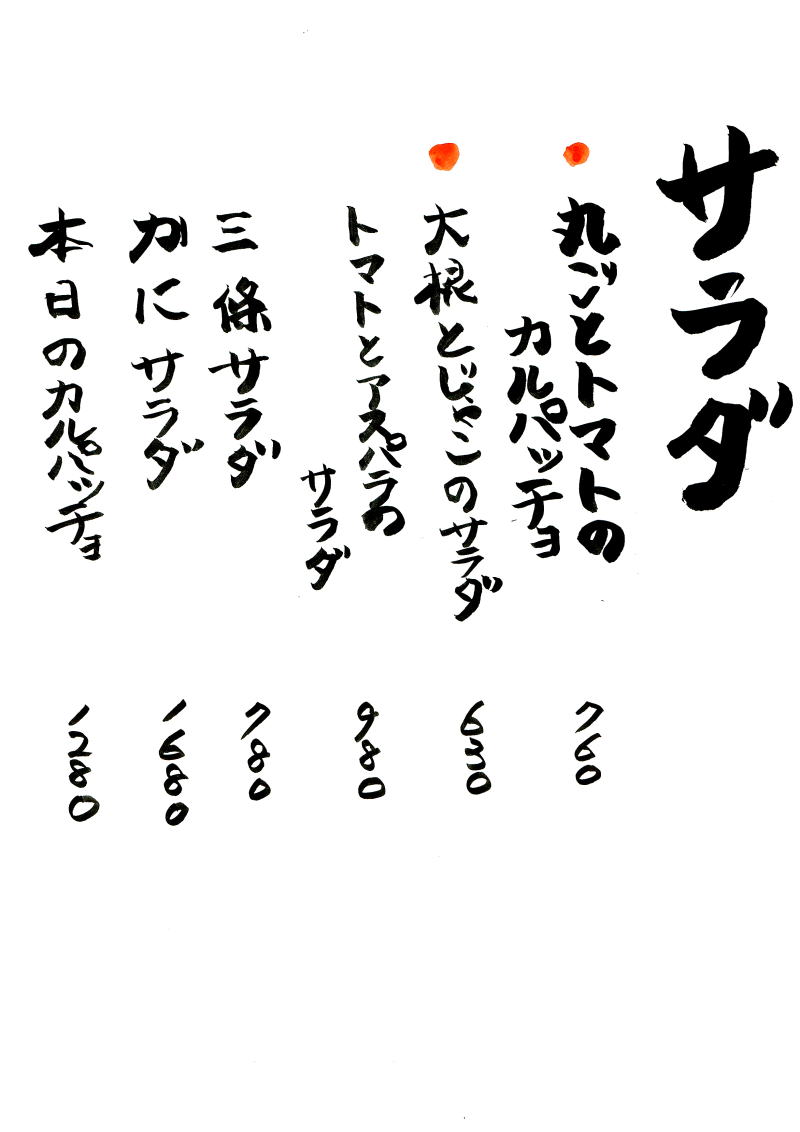 サラダ
丸ごとトマトの
カルパッチョ
760
大根とじゃこのサラダ
630
トマトとアスパラの
サラダ
980
三條サラダ
780
かにサラダ
1680
本日のカルパッチョ
1280